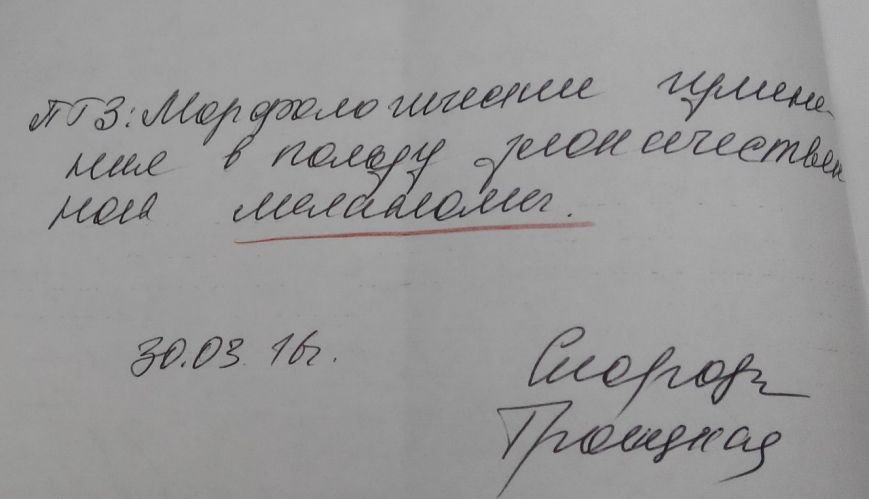 ПГЗ: Морфологические измене-
ния в пользу злокачествен
ной меланомы.
30.03.16г.